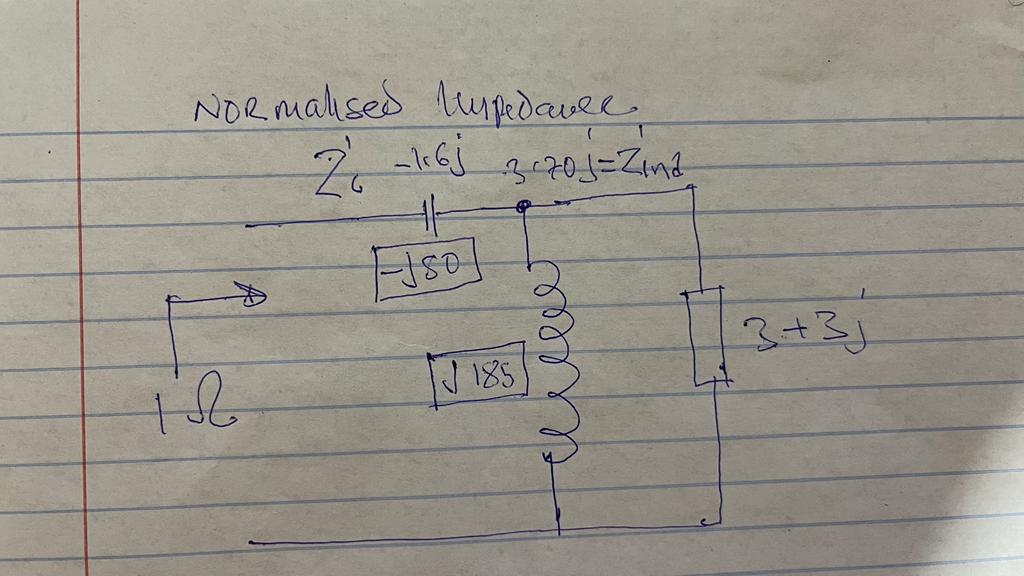 NORMalised Impedance
Z'c -1.6j 3.70j = Z'ind
-j80
j 185
3+3j
1 Ω